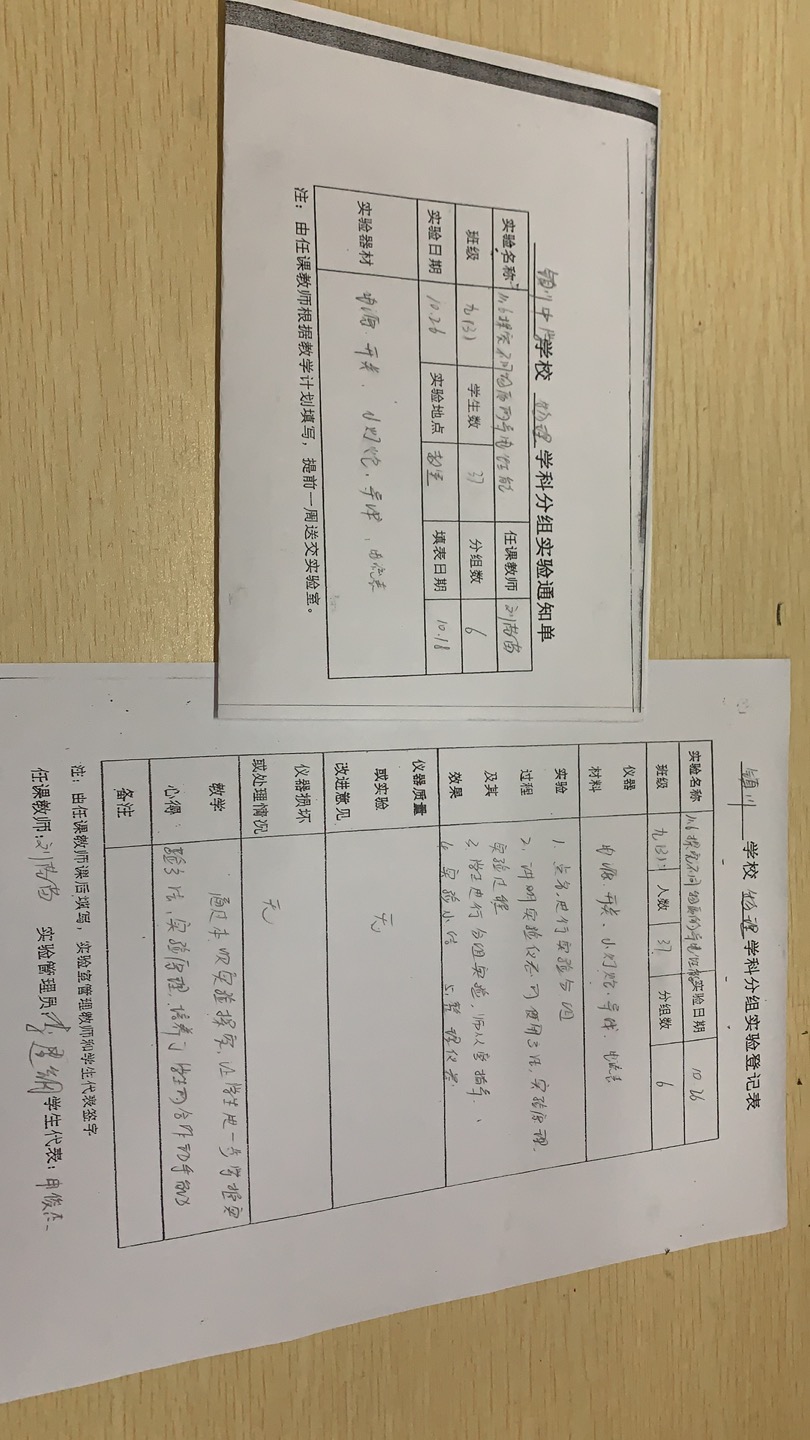 学校 物理 学科分组实验通知单
实验名称 11.6探究不同物质的导电性能 任课教师 刘苗苗
班级 九(3) 学生数 37 分组数 6
实验日期 10.26 实验地点 教室 填表日期 10.18
实验器材 电源、开关、小灯泡、导线、电流表
注：由任课教师根据教学计划填写，提前一周送交实验室。
学校 物理 学科分组实验登记表
实验名称 11.6探究不同物质的导电性能 实验日期 10 26
班级 九(3) 人数 37 分组数 6
仪器材料 电源、开关、小灯泡、导线、电流表
实验过程及其效果
1、点名，进行实验分组
2、讲明实验仪器的使用方法、实验原理、
实验过程
3、学生进行分组实验，师从旁指导、
4、实验小结 5、整理仪器.
仪器质量或实验改进意见 无
仪器损坏或处理情况 无
教学心得：
通过本次实验探究，让学生进一步掌握实
验方法、实验原理、培养了学生的合作动手能力
备注
注：由任课教师课后填写，实验室管理教师和学生代表签字
任课教师：刘苗苗 实验管理员 学生代表：